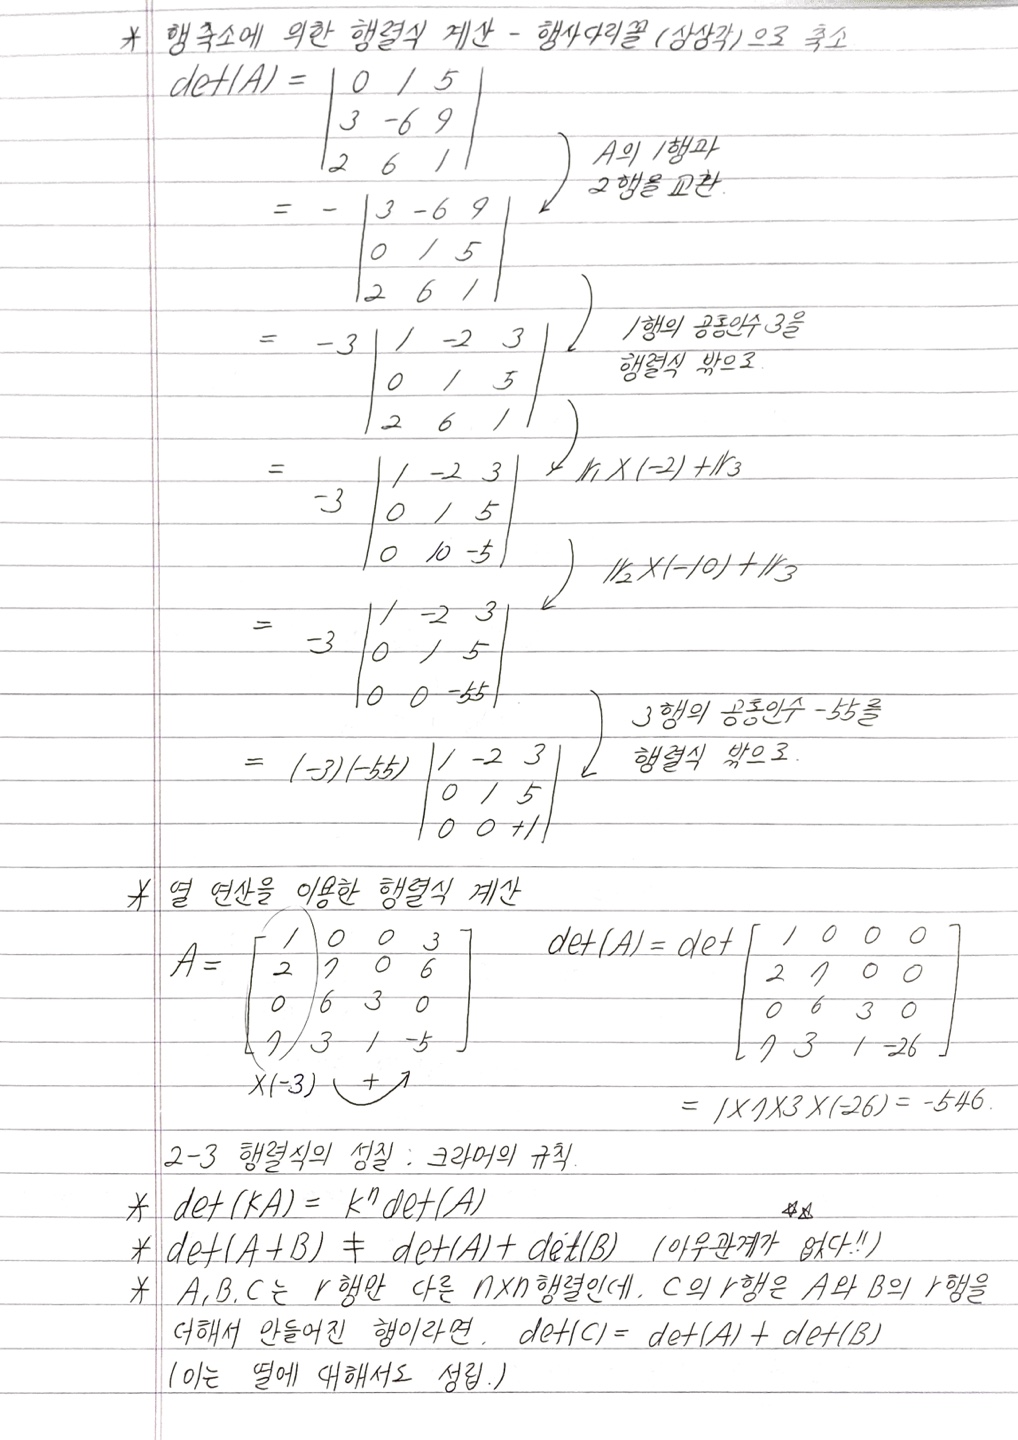 * 행 축소에 의한 행렬식 계산 - 행사다리꼴 (상삼각)으로 축소
det(A) = | 0 1 5 |
| 3 -6 9 |
| 2 6 1 |
A의 1행과
2행을 교환.
= - | 3 -6 9 |
| 0 1 5 |
| 2 6 1 |
1행의 공통인수 3을
행렬식 밖으로.
= -3 | 1 -2 3 |
| 0 1 5 |
| 2 6 1 |
r₁ X (-2) + r₃
= -3 | 1 -2 3 |
| 0 1 5 |
| 0 10 -5 |
r₂ X (-10) + r₃
= -3 | 1 -2 3 |
| 0 1 5 |
| 0 0 -55 |
3행의 공통인수 -55를
행렬식 밖으로.
= (-3)(-55) | 1 -2 3 |
| 0 1 5 |
| 0 0 +1 |
* 열 연산을 이용한 행렬식 계산
A = [ 1 0 0 3
2 7 0 6
0 6 3 0
7 3 1 -5 ]
X(-3) +
det(A) = det [ 1 0 0 0
2 7 0 0
0 6 3 0
7 3 1 -26 ]
= 1X7X3X(-26) = -546.
2-3 행렬식의 성질 : 크라머의 규칙.
* det(kA) = kⁿdet(A)
☆☆
* det(A+B) ≠ det(A) + det(B) (아무관계가 없다!!)
* A, B, C는 r행만 다른 nxn행렬인데. C의 r행은 A와 B의 r행을
더해서 만들어진 행이라면. det(C) = det(A) + det(B)
(이는 열에 대해서도 성립.)